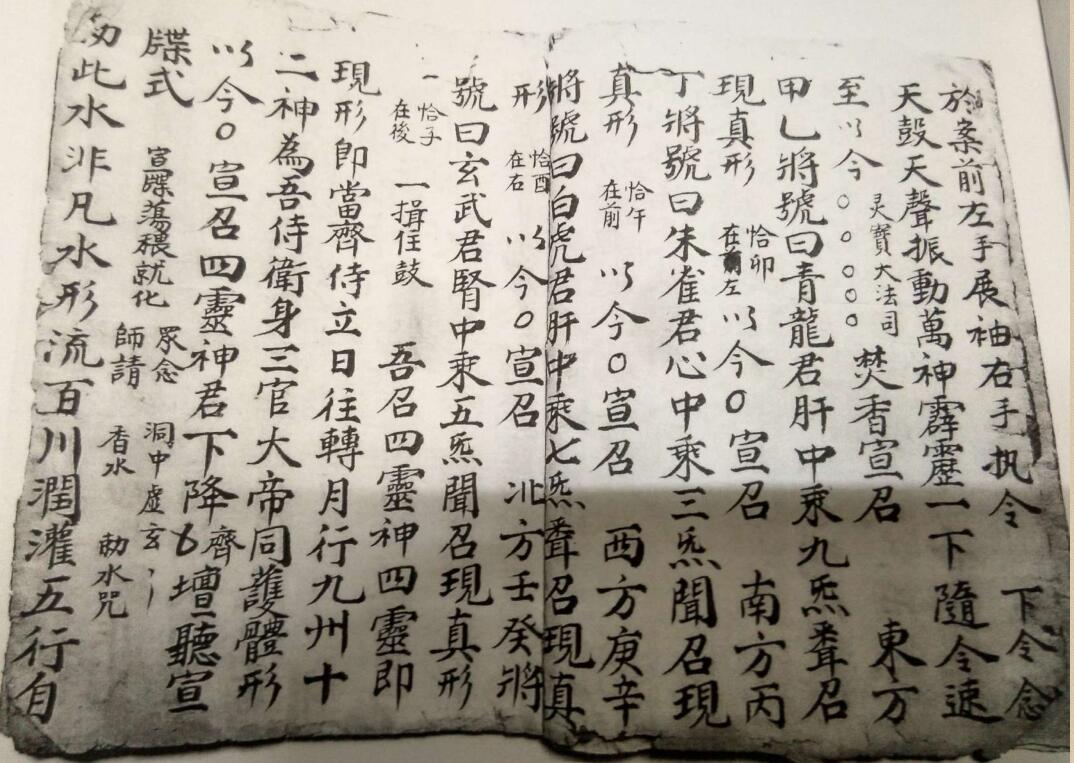 於案前左手展袖右手执令 下令念
天鼓天聲振動萬神霹靂一下隨令速
至以今○○○○○ 灵寳大法司 焚香宣召 東方
甲乙將號曰青龍君肝中乘九炁聞召
現真形 恰卯 在左 以今○宣召 南方丙
丁將號曰朱雀君心中乘三炁聞召現
真形 恰午 在前 以今○宣召 西方庚辛
將號曰白虎君肝中乘七炁聞召現真
形 恰酉 在右 以今○宣召 北方壬癸將
號曰玄武君腎中乘五炁聞召現真形
一 恰子 在後 一揖住鼓 吾召四靈神四靈即
現形即當齊侍立日往轉月行九州十
二神為吾侍衛身三官大帝同護體形
以今○宣召四靈神君下降齊壇聽宣
牒式 宣牒蕩穢就化 眾念 師請 洞中虛玄 香水 勅水咒
此水非凡水形流百川潤灌五行自